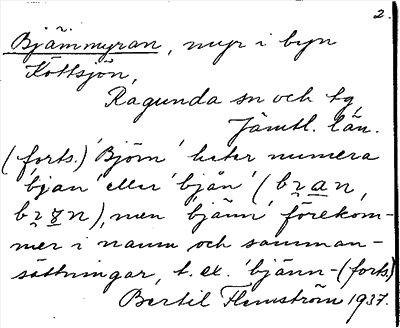 2.
Bjämmyran, myr i byn
Kottsjön,
Ragunda sn och tg,
Jämtl. län.
(forts.) 'Björn' heter numera
'bjan' eller 'bjän' (
men 'bjänn' förekom-
mer i namn och samman-
sättningar, t. ex. 'bjänn-(forts.)
Bertil Flemström 1937.